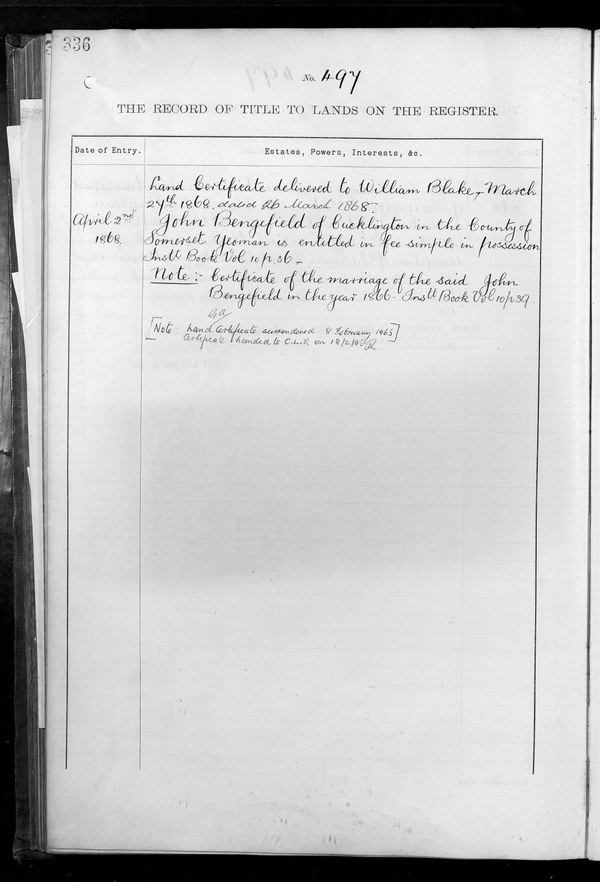 336
No. 497
THE RECORD OF TITLE TO LANDS ON THE REGISTER.
Date of Entry. Estates, Powers, Interests, &c.
Land Certificate delivered to William Blake, March
27th 1868. dated 26 March 1868.
April 2nd John Bengefield of Cucklington in the County of
1868. Somerset Yeoman is entitled in fee simple in possession
Instt. Book Vol 10 p. 36 -
Note :- Certificate of the marriage of the said John
Bengefield in the year 1866 - Instt Book Vol 10 p 39.
[Note: Land Certificate surrendered 8 February 1965]
Certificate handed to C.L.R. on 18/2/65